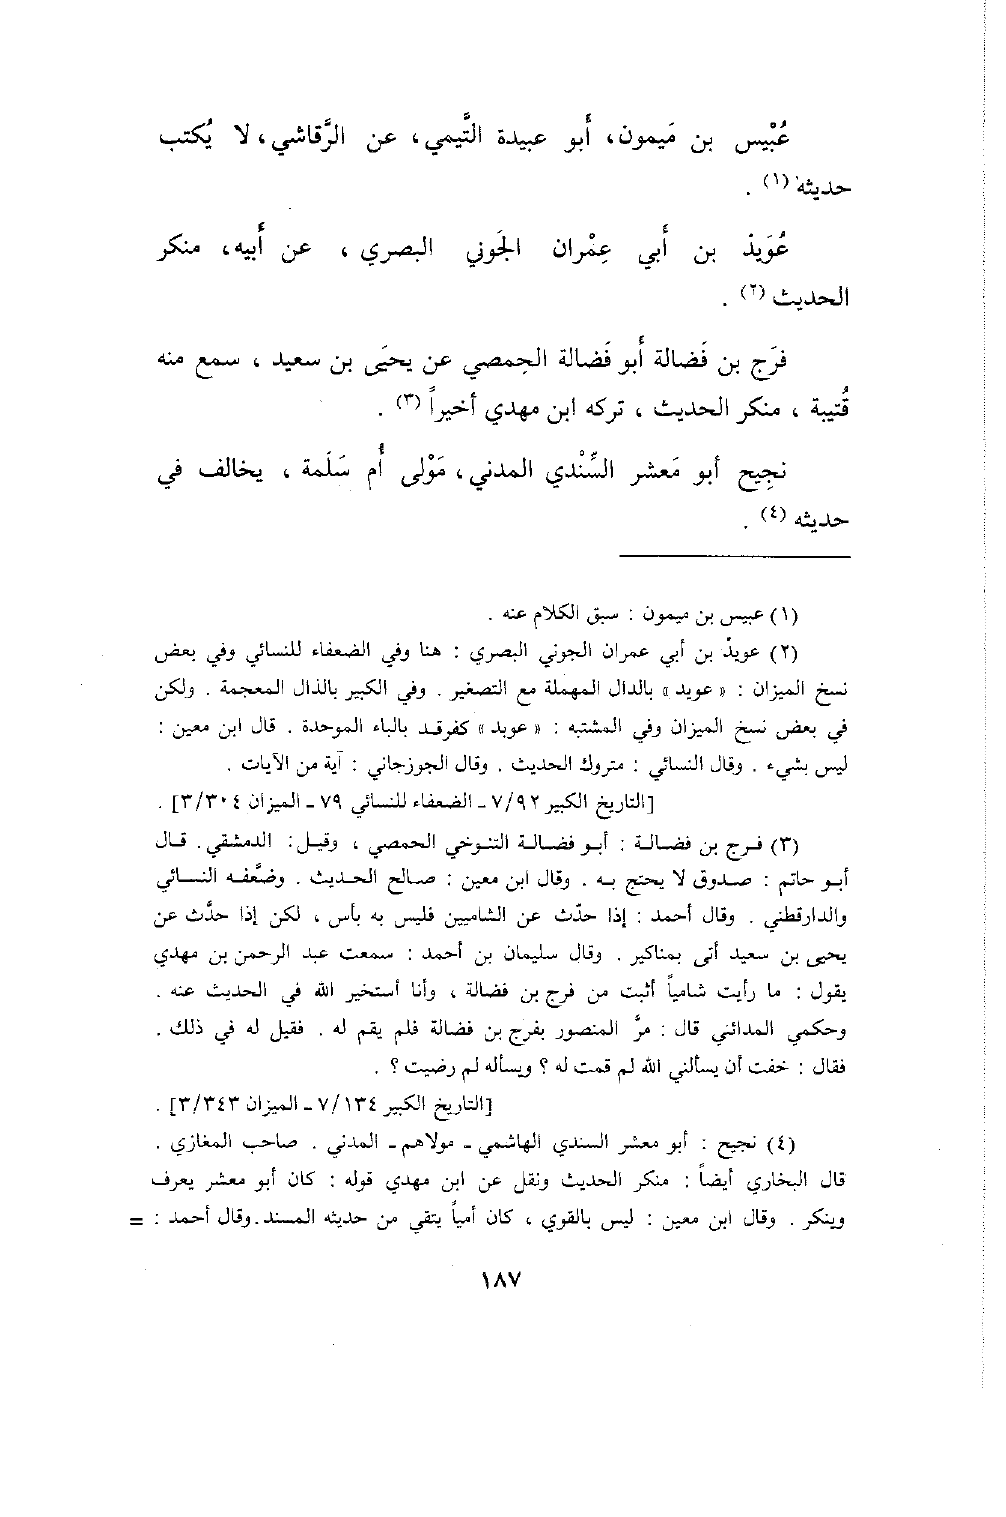 عُبَيْس بن مَيمون، أَبو عبيدة التَّيمي، عن الرَّقاشي، لا يُكتب
حديثه (١) .
عُوَيذ بن أَبي عِمْران الجَوني البصري ، عن أَبيه، منكر
الحديث (٢) .
فرَج بن فَضالة أَبو فَضالة الحِمصي عن يحيَى بن سعيد ، سمع منه
قُتيبة ، منكر الحديث ، تركه ابن مهدي أخيراً (٣) .
نجِيح أبو مَعشر السِّنْدي المدني، مَوْلى أُم سَلَمة ، يخالف في
حديثه (٤) .
(١) عبيس بن ميمون : سبق الكلام عنه .
(٢) عويذ بن أبي عمران الجوني البصري : هنا وفي الضعفاء للنسائي وفي بعض
نسخ الميزان : « عويد » بالدال المهملة مع التصغير . وفي الكبير بالذال المعجمة . ولكن
في بعض نسخ الميزان وفي المشتبه : « عوبد » كفرقد بالباء الموحدة . قال ابن معين :
ليس بشيء . وقال النسائي : متروك الحديث . وقال الجوزجاني : آية من الآيات .
[التاريخ الكبير ٧/٩٢ ـ الضعفاء للنسائي ٧٩ ـ الميزان ٣/٣٠٤] .
(٣) فرج بن فضالة : أبو فضالة التنوخي الحمصي ، وقيل: الدمشقي. قال
أبو حاتم : صدوق لا يحتج به . وقال ابن معين : صالح الحديث . وضعَّفه النسائي
والدارقطني . وقال أحمد : إذا حدّث عن الشاميين فليس به بأس ، لكن إذا حدَّث عن
يحيى بن سعيد أتى بمناكير . وقال سليمان بن أحمد : سمعت عبد الرحمن بن مهدي
يقول : ما رأيت شامياً أثبت من فرج بن فضالة ، وأنا أستخير الله في الحديث عنه .
وحكمي المدائني قال : مرَّ المنصور بفرج بن فضالة فلم يقم له . فقيل له في ذلك .
فقال : خفت أن يسألني الله لم قمت له ؟ ويسأله لم رضيت ؟ .
[التاريخ الكبير ٧/١٣٤ ـ الميزان ٣/٣٤٣] .
(٤) نجيح : أبو معشر السندي الهاشمي ـ مولاهم ـ المدني . صاحب المغازي .
قال البخاري أيضاً : منكر الحديث ونقل عن ابن مهدي قوله : كان أبو معشر يعرف
وينكر . وقال ابن معين : ليس بالقوي ، كان أمياً يتقي من حديثه المسند.وقال أحمد : =
١٨٧